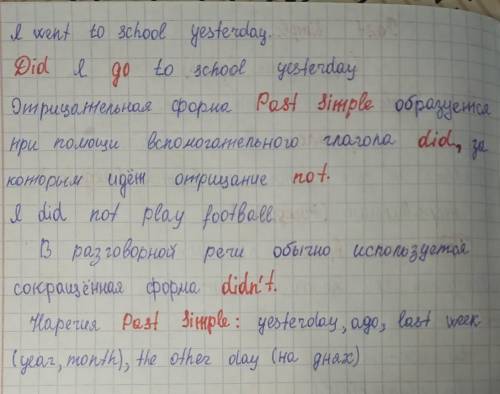 I went to school yesterday.
Did I go to school yesterday
Отрицательная форма Past Simple образуется
при помощи вспомогательного глагола did, за
которым идёт отрицание not.
I did not play football.
В разговорной речи обычно используется
сокращённая форма didn't.
Наречия Past Simple: yesterday, ago, last week
(year, month), the other day (на днях)